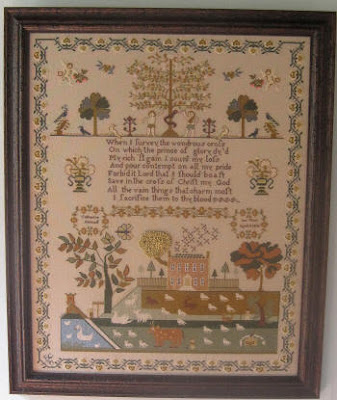 When I survey the wondrous cross
On which the prince of glory dy'd
My rich gain I count my loss
And pour contempt on all my pride
Forbid it Lord that I should boast
Save in the cross of Christ my God
All the vain things that charm most
I sacrifice them to thy blood